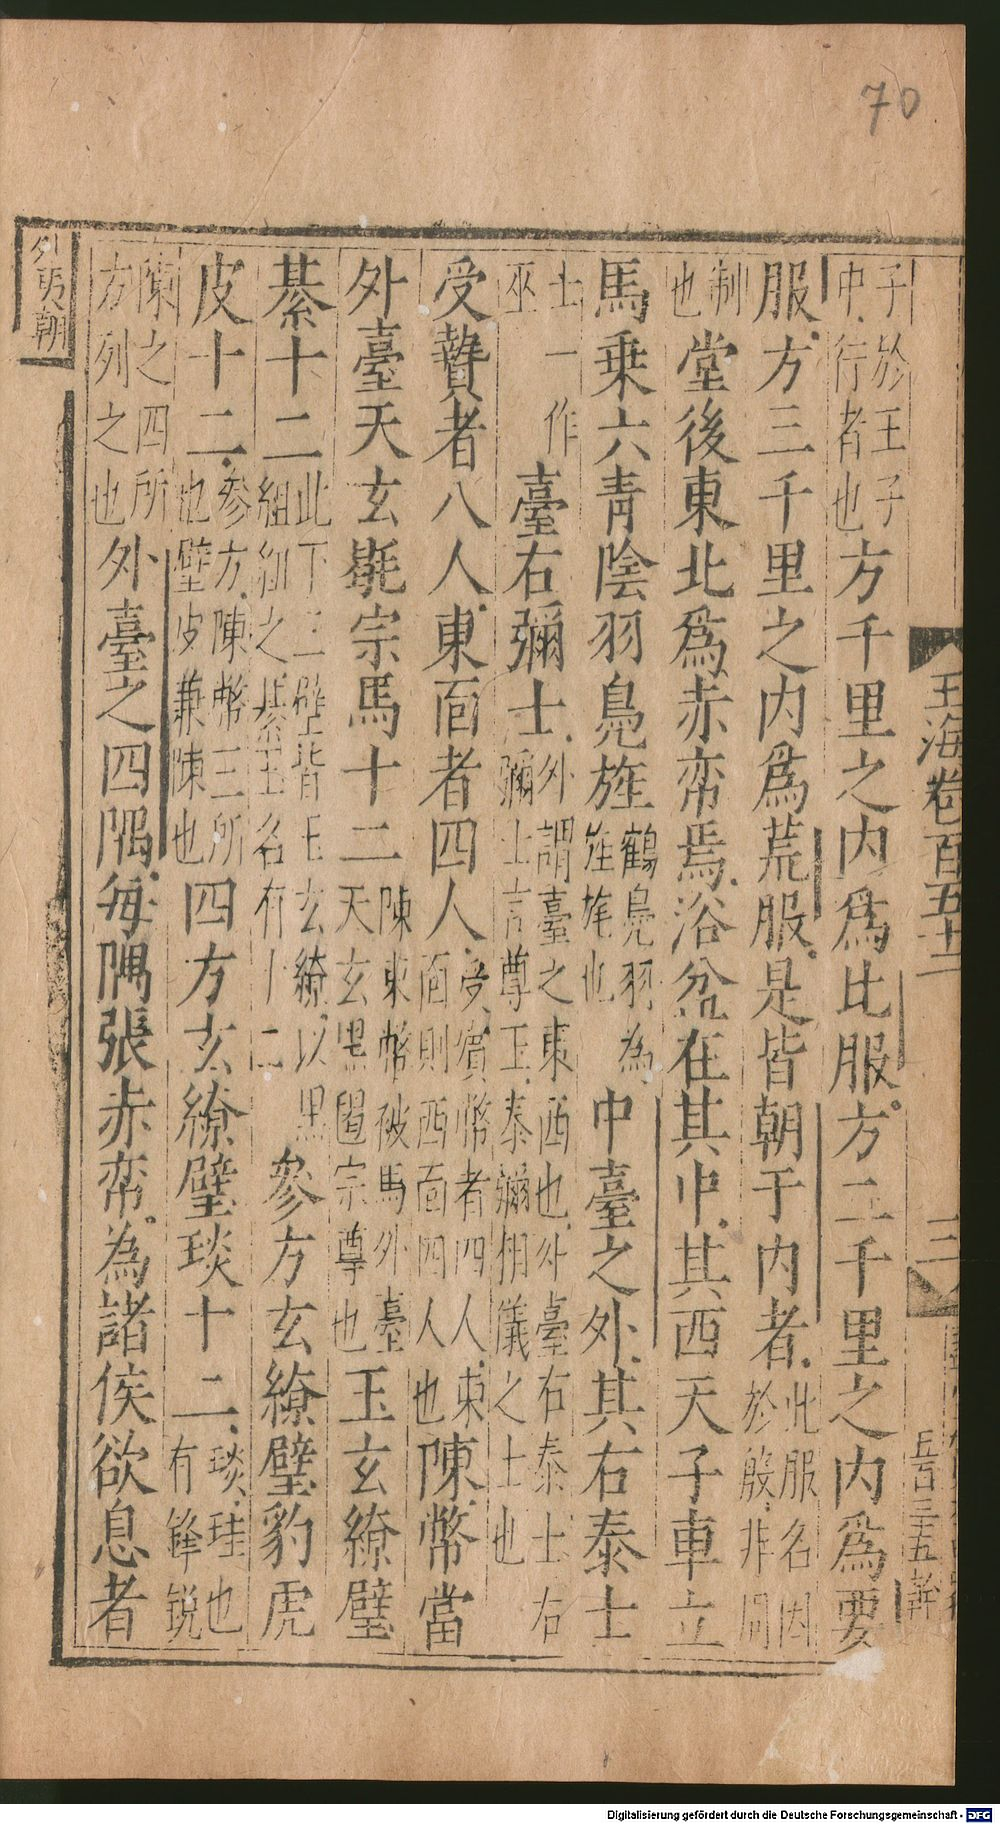 70
子於王子
中行者也方千里之内爲比服方二千里之内爲要
服方三千里之内爲荒服是皆朝于内者此服名因
於殷非周
制
也堂後東北爲赤帟焉浴盆在其中其西天子車立
馬乗六青陰羽鳬旌鶴鳬羽為
旌旄也中臺之外其右泰士
士一作
巫臺右彌士外謂臺之東西也外臺右泰士右
彌士言尊王泰彌相儀之士也
受贄者八人東靣者四人受賔幣者四人東
靣則西靣四人也陳幣當
外臺天玄㲠宗馬十二陳束幣被馬外臺
天玄黑㲠宗尊也玉玄繚璧
綦十二此下三璧皆玉玄繚以黒
組紐之綦玉名有十二參方玄繚璧豹虎
皮十二參方陳幣三所
也璧皮兼陳也四方玄繚璧琰十二琰珪也
有鋒鋭
陳之四所
方列之也外臺之四隅每隅張赤帟為諸侯欲息者
外夷朝
玉海卷百五十二
三
五百三五
Digitalisierung gefördert durch die Deutsche Forschungsgemeinschaft - DFG